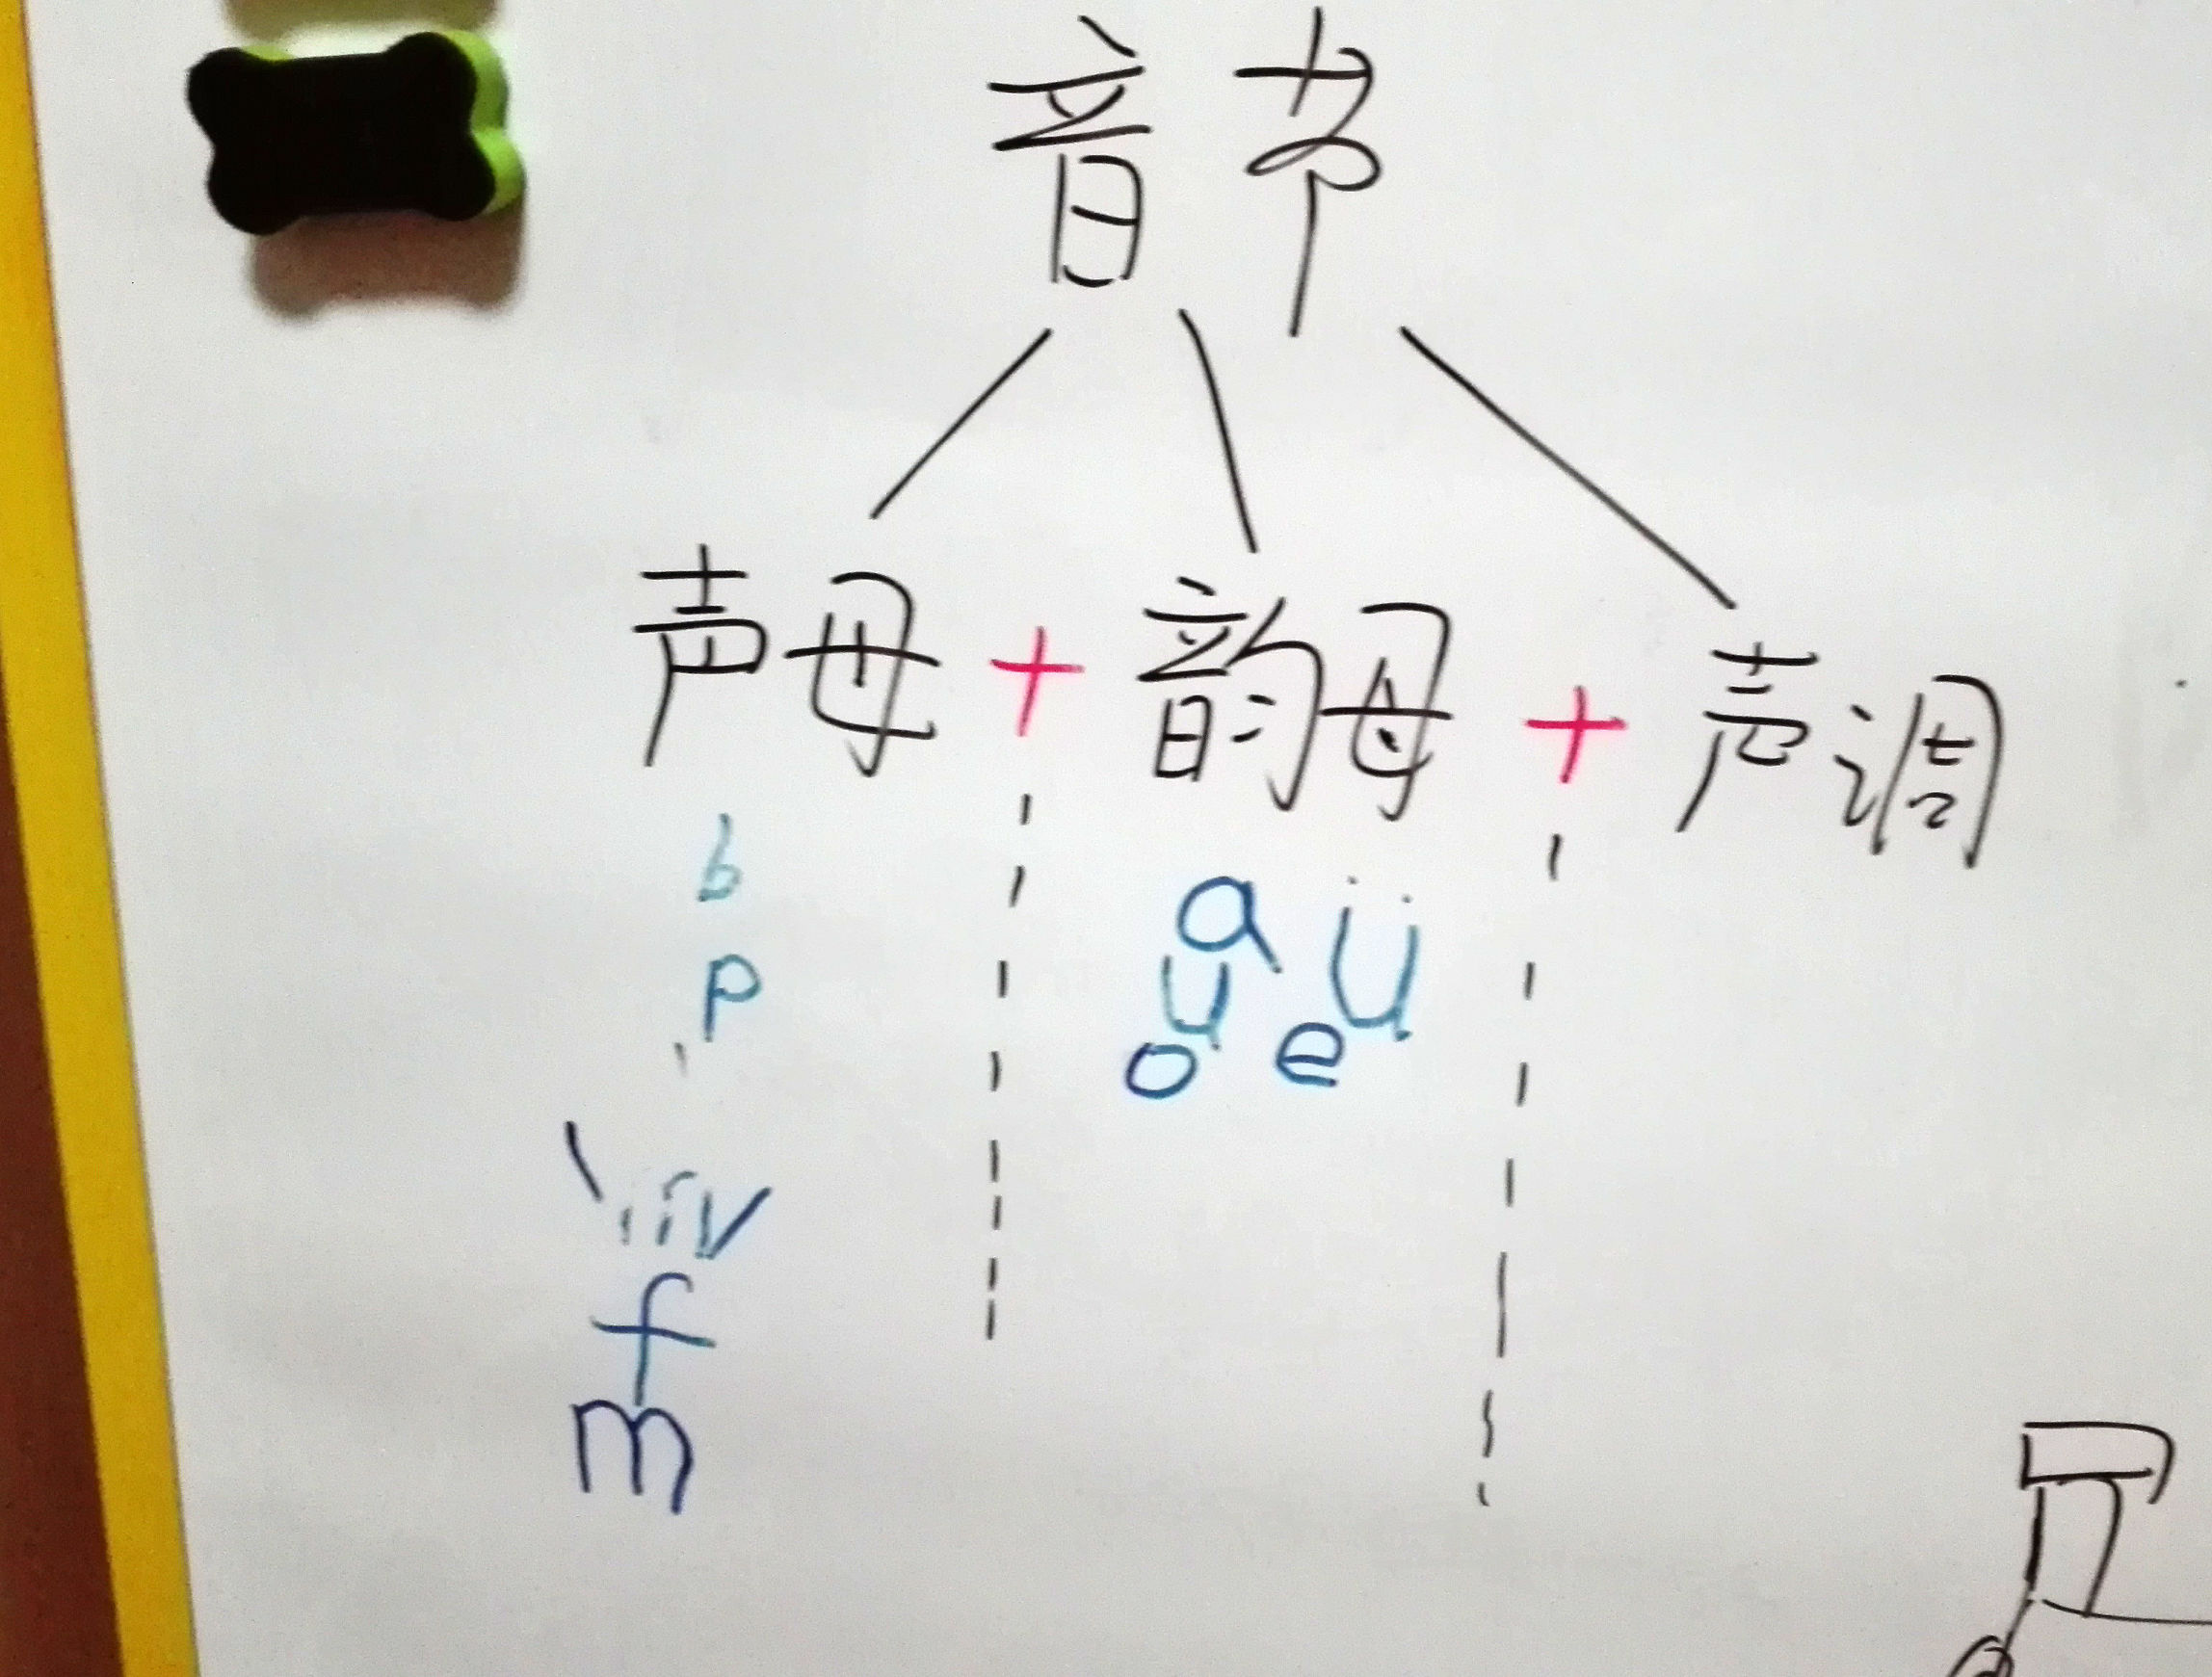 音节
声母 + 韵母 + 声调
b
p
f
m
a ü
u
o e